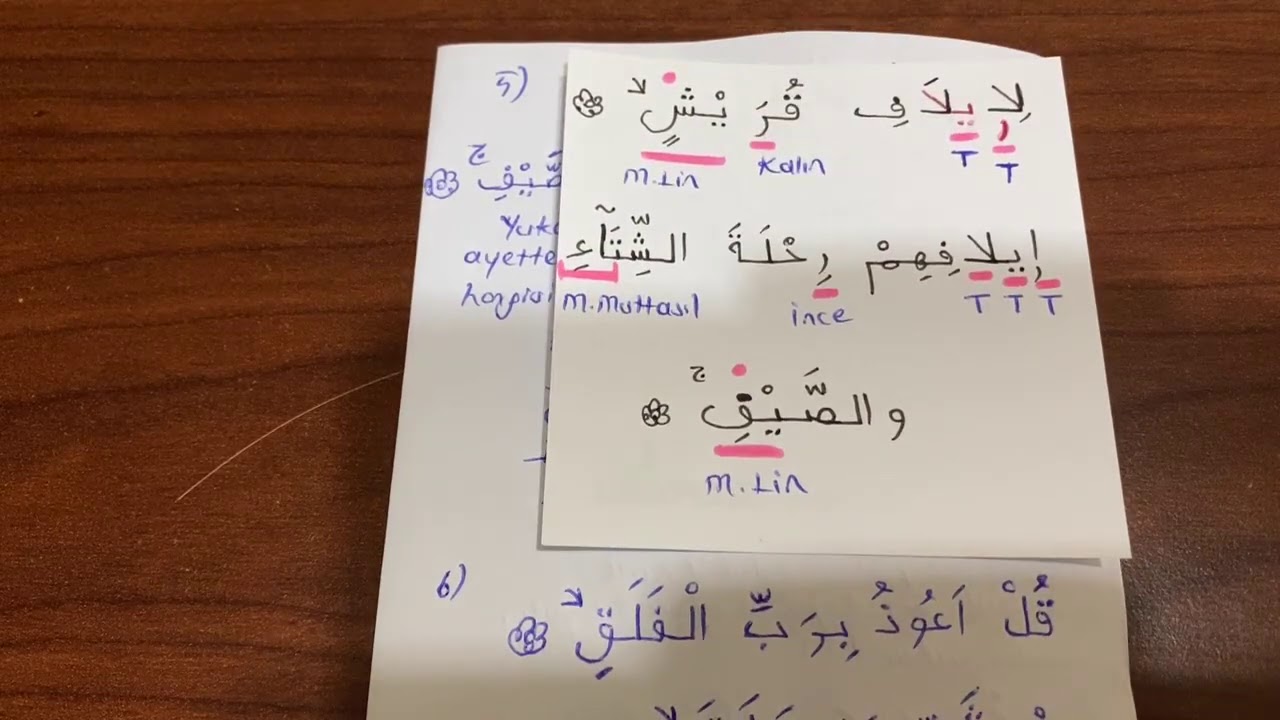 5)
لِا يلَا فِ قُرَ يْشٍ لا
T T Kalın M.Lin
اِيلَا فِهِمْ رِحْلَةَ الشِّتَآءِ
T T T ince M.Muttasıl
وَالصَّيْفِ ج
M.Lin
صَّيْفِ ج
ayette
6)
قُلْ اَعُوذُ بِرَبِّ الْفَلَقِ لا